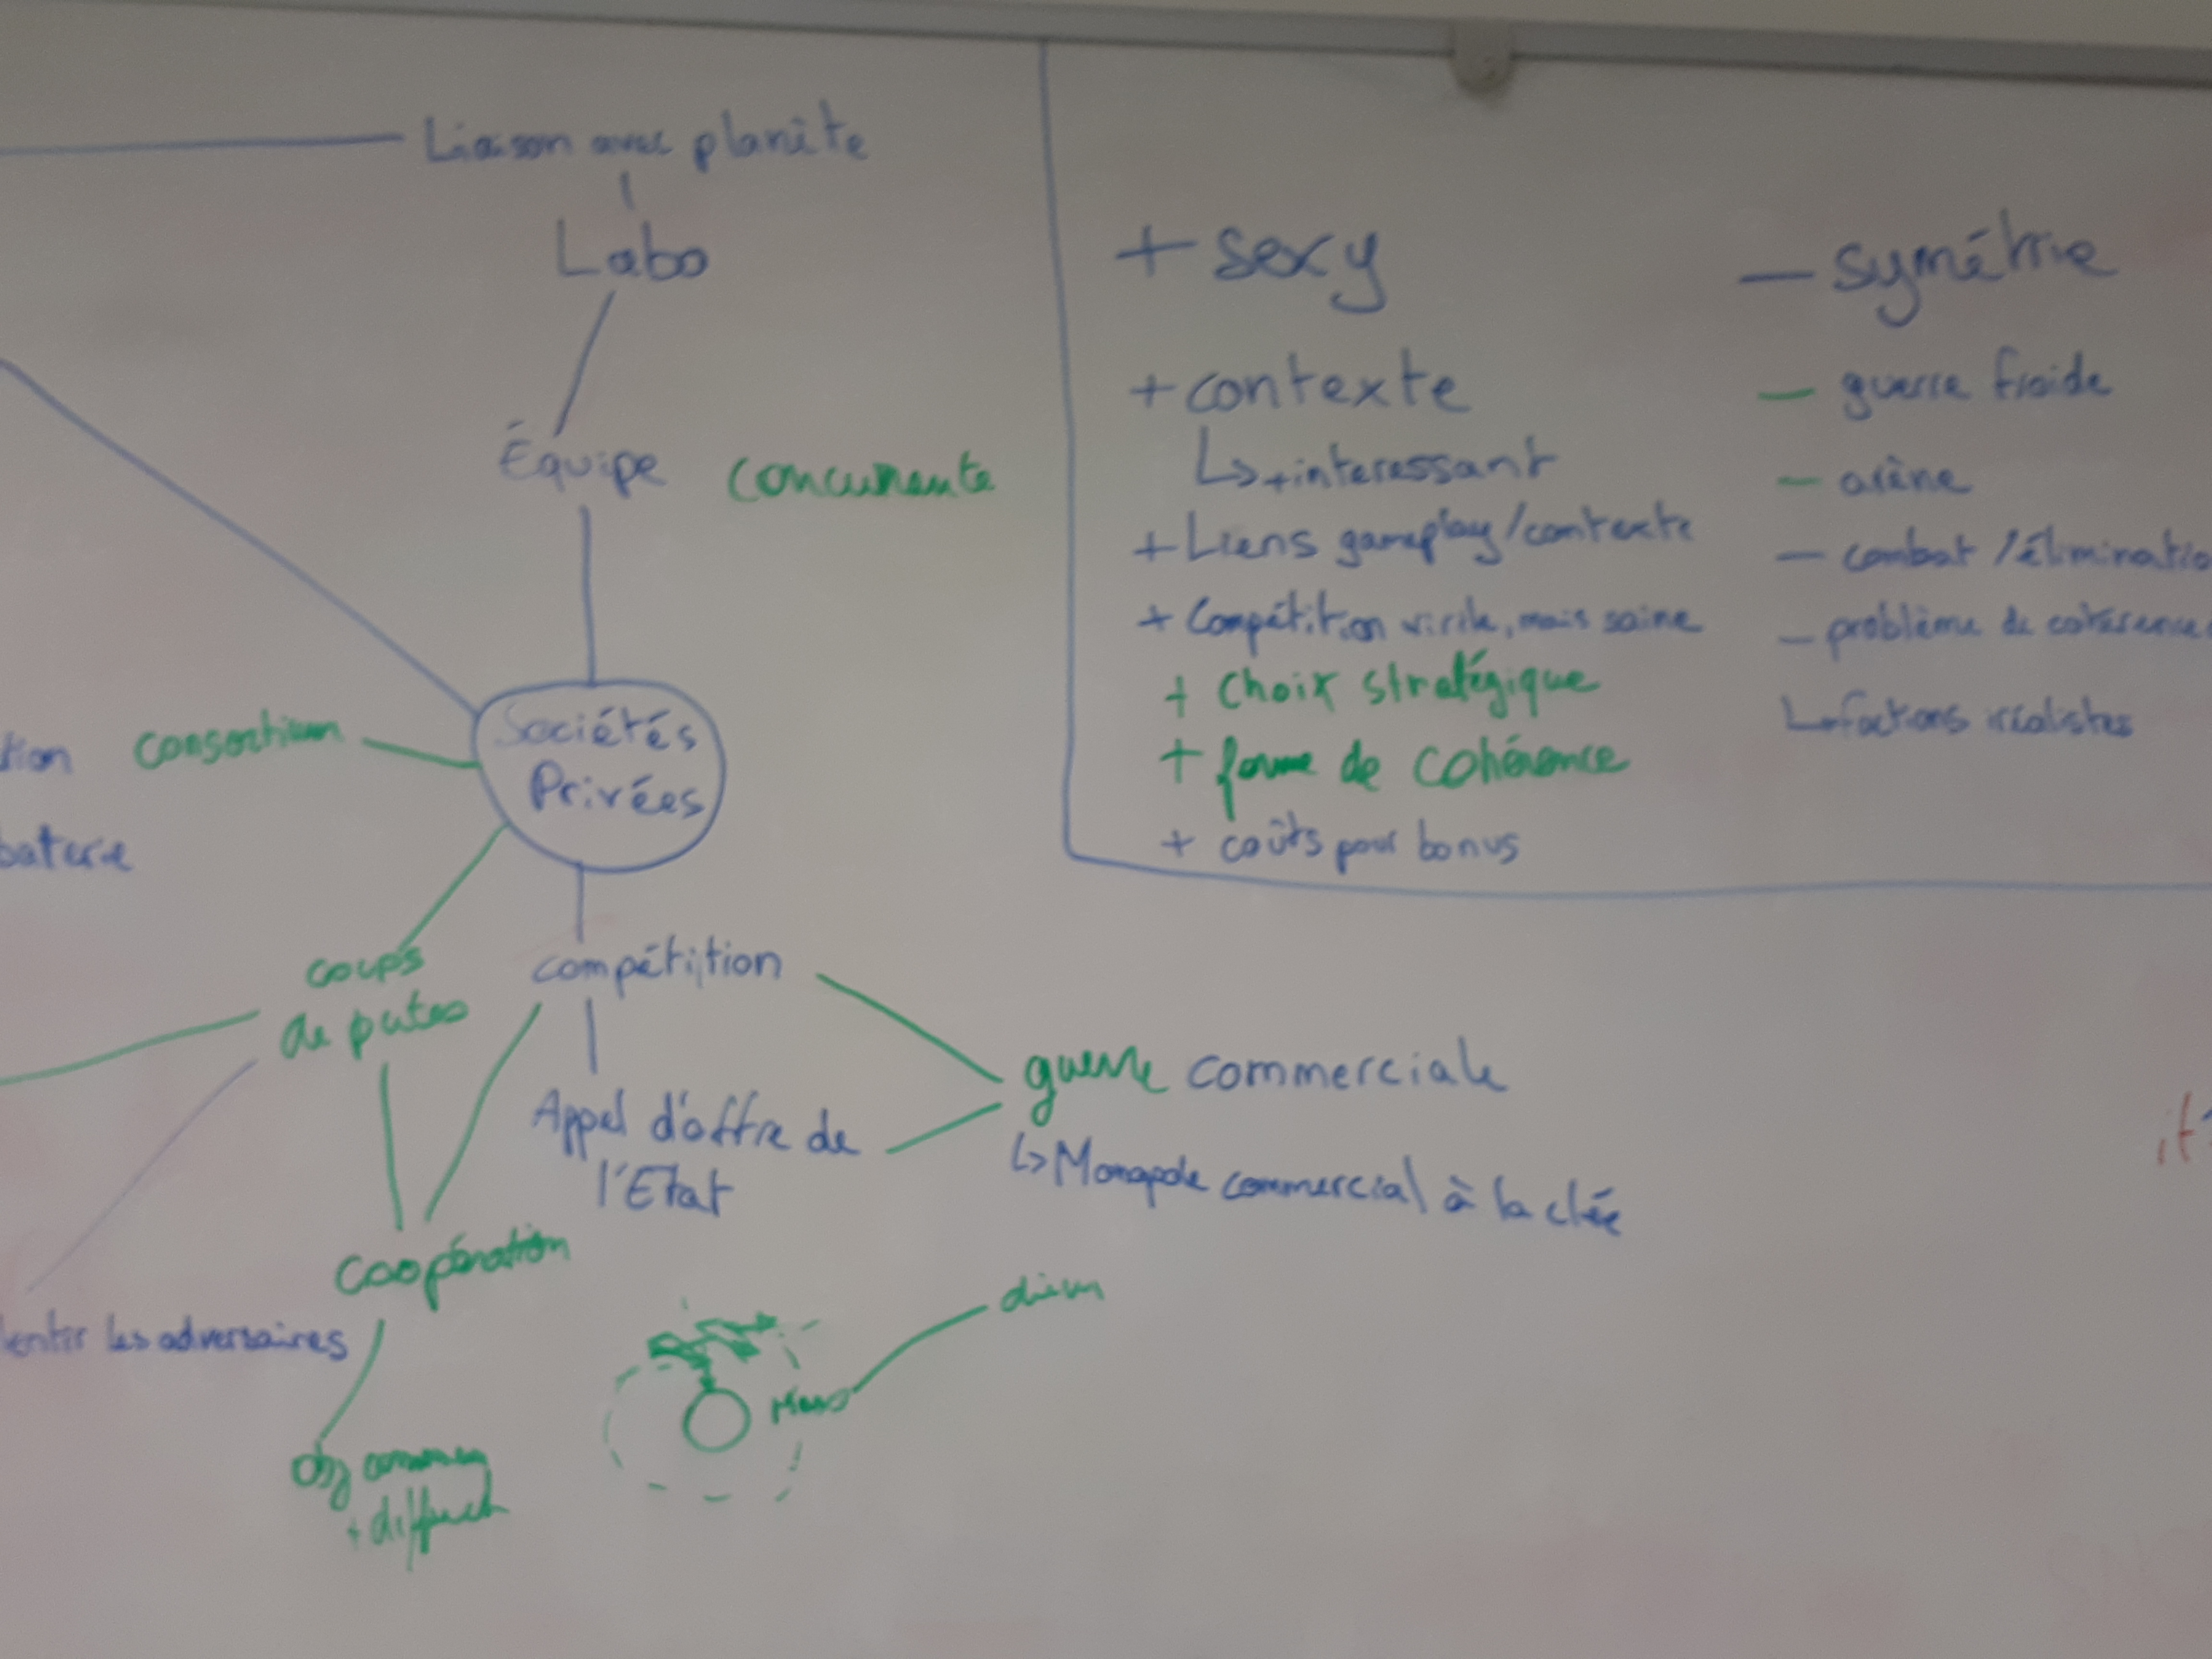 Liaison avec planète
Labo
Équipe concurrente
Sociétés
Privées
consortium
tion
baterie
coups
de putes
compétition
Appel d'offre de
l'Etat
guerre commerciale
↳ Monopole commercial à la clée
Coopération
les adversaires
obj commun
+ diff
Mars
+ sexy
+ contexte
↳ + interessant
+ Liens gameplay/contexte
+ Compétition virile, mais saine
+ Choix stratégique
+ forme de cohérence
+ coûts pour bonus
— symétrie
— guerre froide
— arène
— combat / éliminatio
— problème de cohérence
↳ factions irréalistes